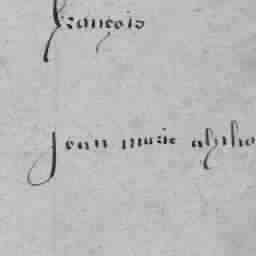 françois
Jean marie alpho